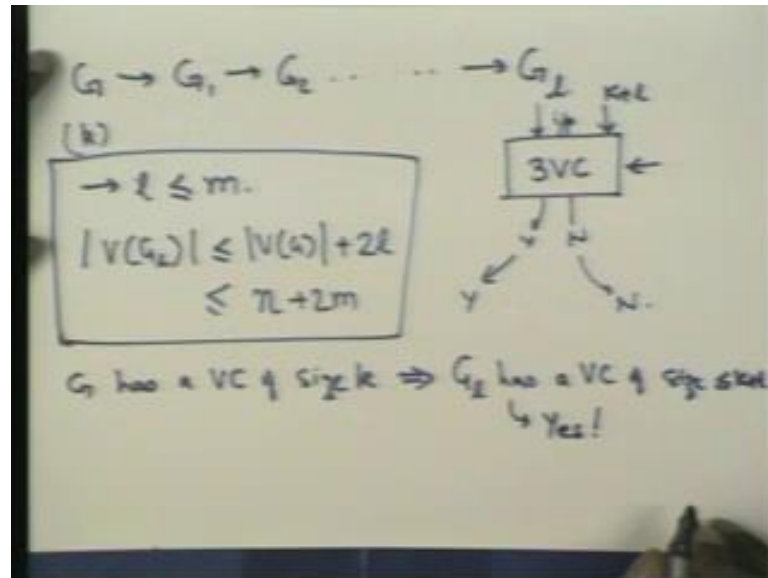 G → G₁ → G₂ .. .. → G_l
(k) k+l
3VC ←
→ l ≤ m.
|V(G_l)| ≤ |V(G)| + 2l
≤ n + 2m
Y N
Y N.
G has a VC of size k ⇒ G_l has a VC of size ≤ k+l
↳ Yes!